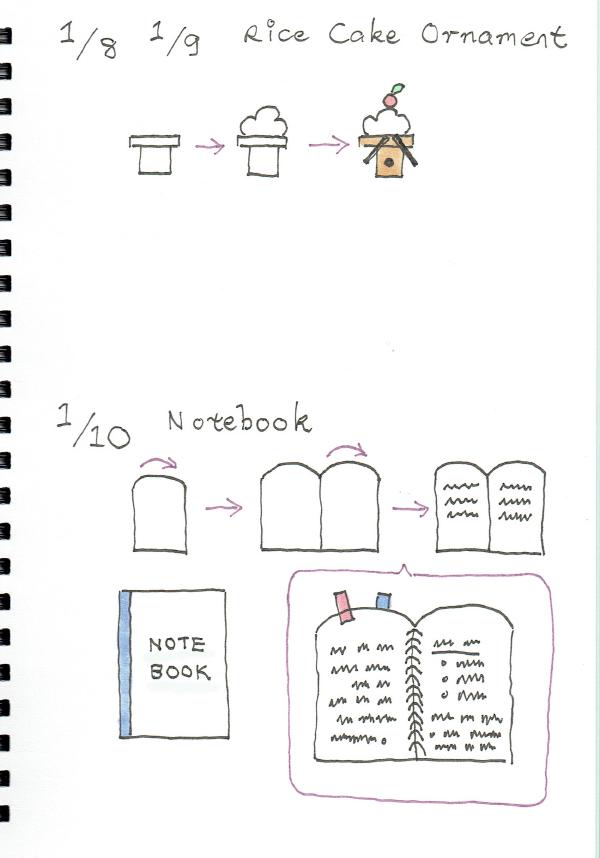 1/8 1/9 Rice Cake Ornament
1/10 Notebook
NOTE
BOOK